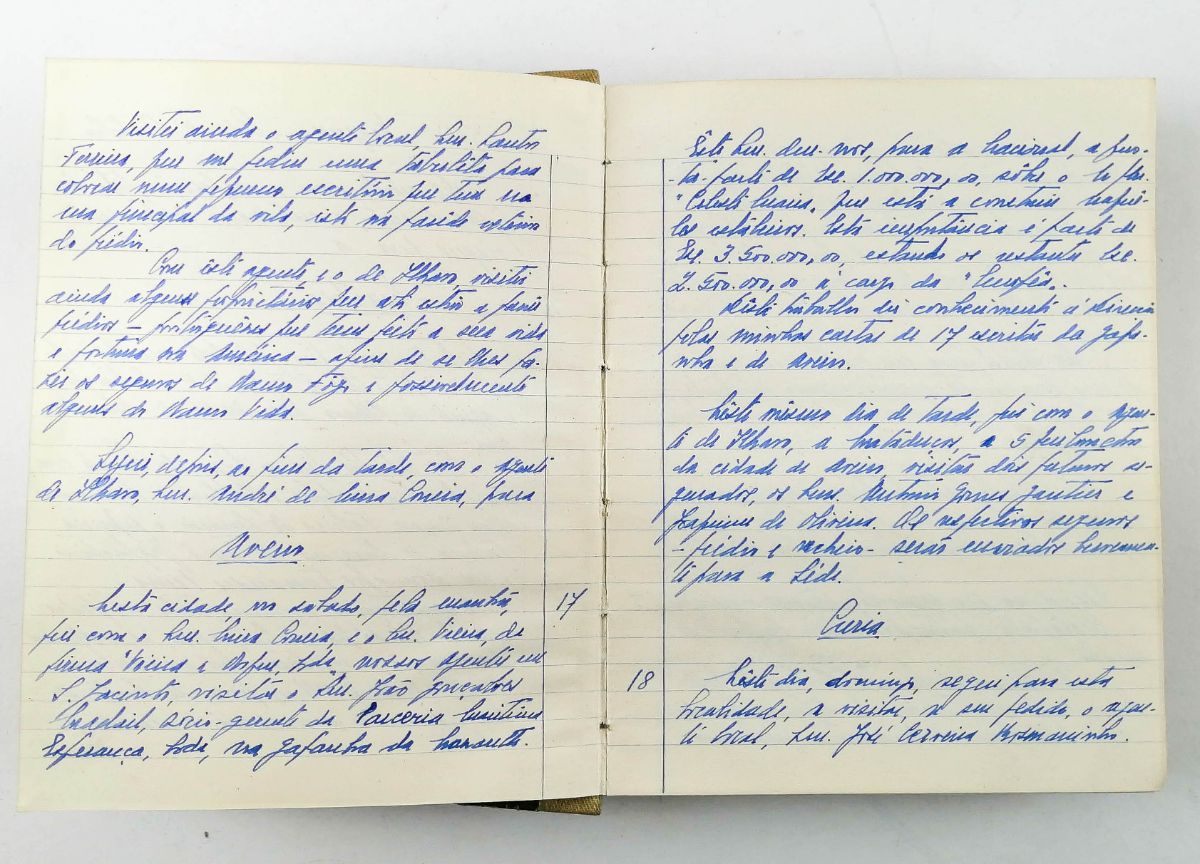 Visitei ainda o agente local, Snr. Santos
Ferreira, que me pediu uma tabuleta para
colocar num pequeno escritório que tem na
rua principal da vila, isto na faside
do prédio.
Com êste agente e o de Ilhavo, visitei
ainda alguns proprietários que ali estão a fazer
prédios — portuguêses que teem feito a sua vida
e fortuna na América — afim de se lhes fa-
zer os seguros de Ramo Fôgo e possivelmente
alguns do Ramo Vida.
Segui, depois, ao fim da tarde com o agente
de Ilhavo, Snr. André de Lima Correia, para
Aveiro
Nesta cidade, no sabado, pela manhã, 17
fui com o Snr. Lima Correia, e o Snr. Vieira, da
firma "Vieira & Lda", nossos agentes em
S. Jacinto, visitar o Snr. João Gonçalves
sócio-gerente da Parceria Maritima
Esperança, Lda, na Gafanha da Nazareth.
Êste Snr. deu-nos, para a Nacional, a quo-
ta-parte de Esc. 1.000.000,00, sôbre o
"Celeste Maria", que está a construir naqué-
les estaleiros. Esta importância é parte de
Esc. 3.500.000,00, estando os restante Esc.
2.500.000,00 a cargo da "Europêa".
Dêste trabalho dei conhecimento á Direcção
pelas minhas cartas de 17 escritas da Gafa-
nha e de Aveiro.
Nêste mêsmo dia de tarde, fui com o agen-
te de Ilhavo, a Mataduços, a 5 quilometros
da cidade de Aveiro, visitar dois futuros se-
gurados, os Snrs. António Gomes Gautier e
Zeferino de Oliveira. Os respectivos seguros
- prédio e recheio - serão enviados brevemen-
te para a Séde.
Curia
18 Nêste dia, domingo, segui para esta
localidade, a visitar, a seu pedido, o agen-
te local, Snr. José Cerveira Rosmaninho.